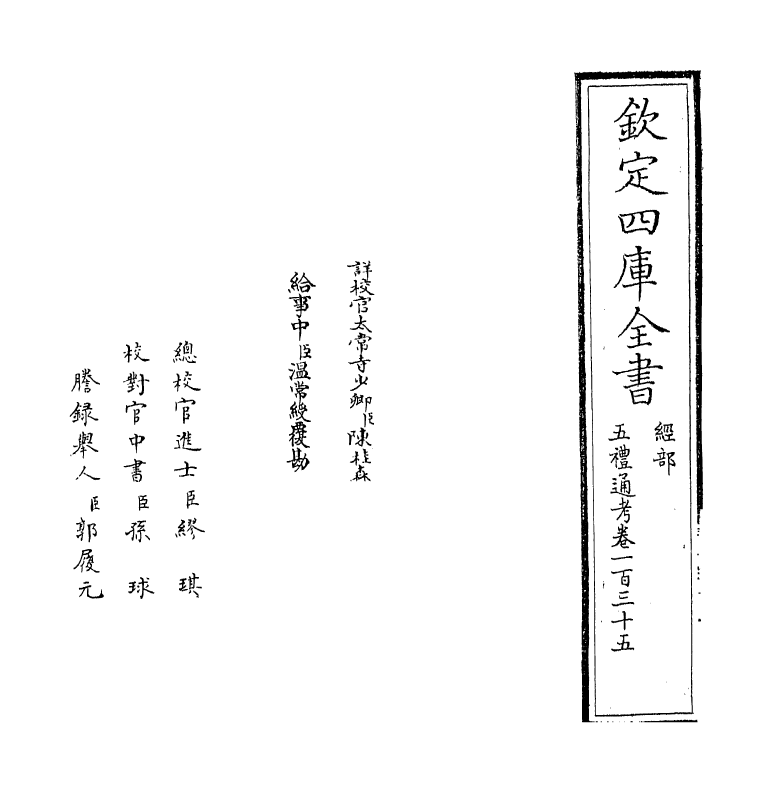 欽定四庫全書
經部
五禮通考卷一百三十五
詳校官太常寺少卿臣陳桂森
給事中臣溫常綬覆勘
總校官進士臣繆琪
校對官中書臣孫球
謄錄舉人臣郭履元